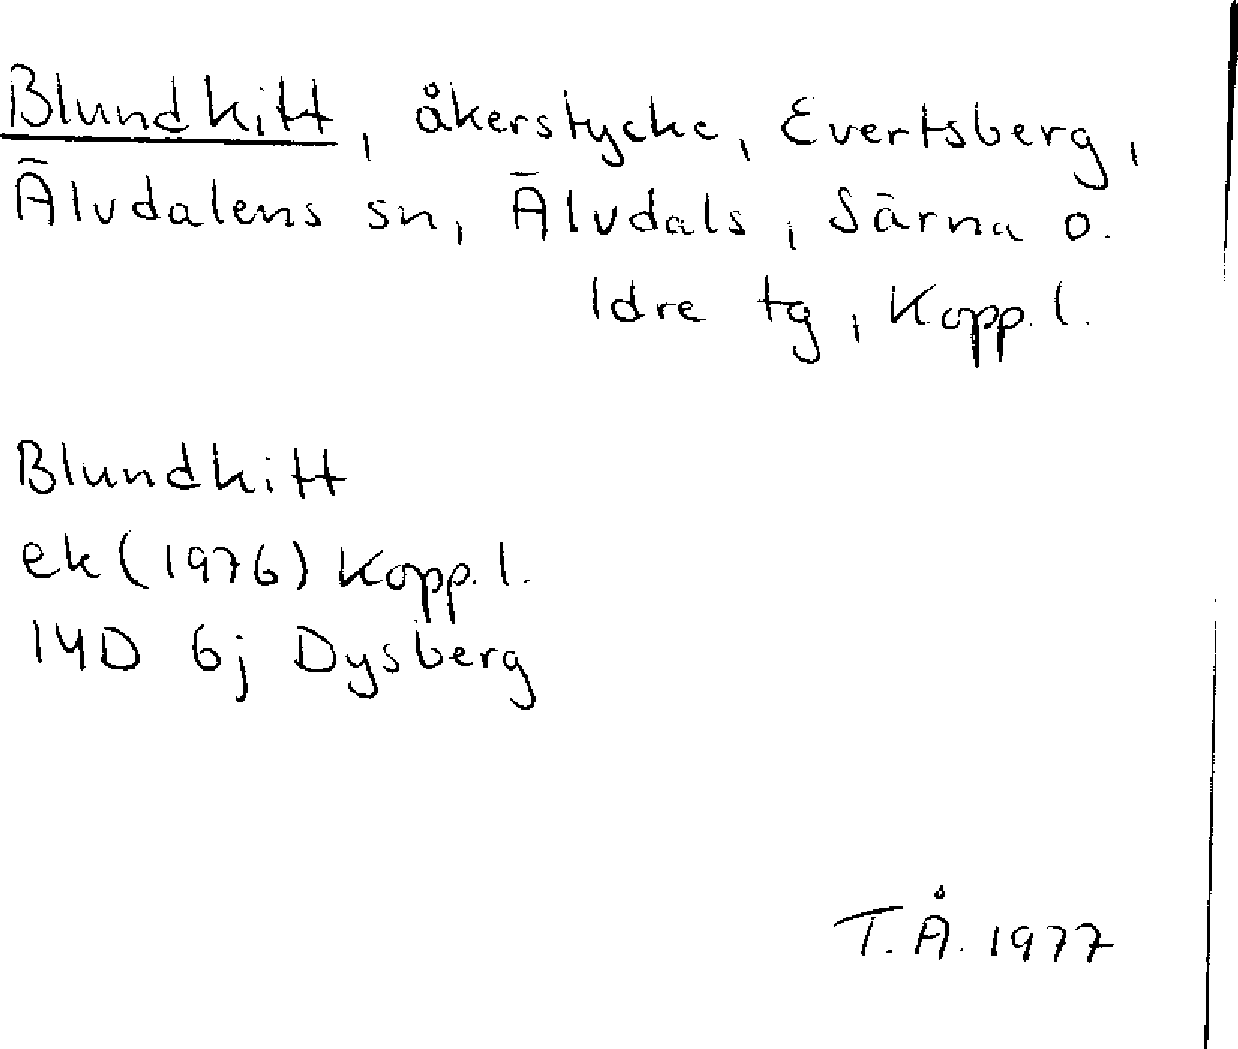 Blundkitt, åkerstycke, Evertsberg,
Älvdalens sn, Älvdals, Särna o.
Idre tg, Kopp. l.
Blundkitt
ek (1976) Kopp. l.
14D 6j Dysberg
T. Å. 1977